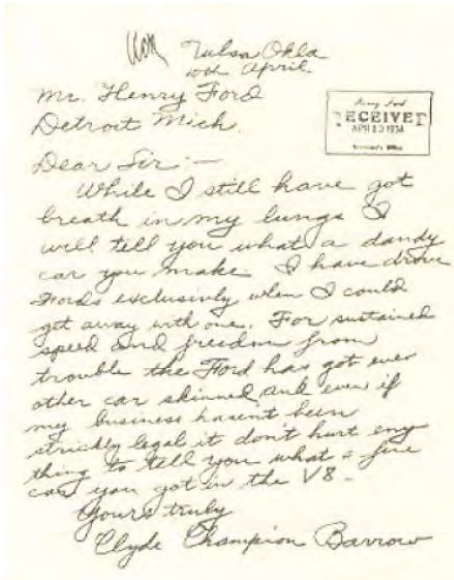 Tulsa Okla
10th April
Mr. Henry Ford
Detroit Mich.
Henry Ford
RECEIVED
APR 13 1934
Secretary's Office
Dear Sir:—
While I still have got
breath in my lungs I
will tell you what a dandy
car you make. I have drove
Fords exclusivly when I could
get away with one. For sustained
speed and freedom from
trouble the Ford has got ever
other car skinned and even if
my business hasen't been
strickly legal it don't hurt eny
thing to tell you what a fine
car you got in the V8-
Yours truly
Clyde Champion Barrow